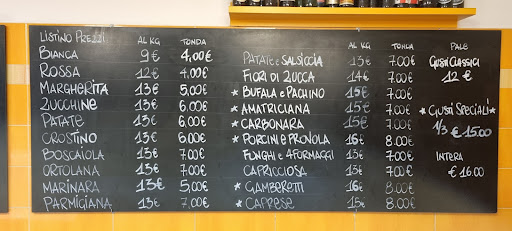 LISTINO PREZZI AL KG TONDA
BIANCA 9€ 4,00€
ROSSA 12€ 4,00€
MARGHERITA 13€ 5,00€
ZUCCHINE 13€ 6,00€
PATATE 13€ 6,00€
CROSTINO 13€ 6,00€
BOSCAIOLA 13€ 7,00€
ORTOLANA 13€ 7,00€
MARINARA 13€ 5,00€
PARMIGIANA 13€ 7,00€
AL KG TONDA
PATATE E SALSICCIA 13€ 7,00€
FIORI DI ZUCCA 14€ 7,00€
* BUFALA E PACHINO 15€ 7,00€
* AMATRICIANA 15€ 7,00€
* CARBONARA 15€ 7,00€
* PORCINI E PROVOLA 16€ 8,00€
FUNGHI E 4 FORMAGGI 13€ 7,00€
CAPRICCIOSA 15€ 7,00€
* GAMBERETTI 16€ 8,00€
* CAPRESE 15€ 8,00€
PALE
GUSTI CLASSICI
12 €
* GUSTI SPECIALI *
1/3 € 15,00
INTERA
€ 16,00